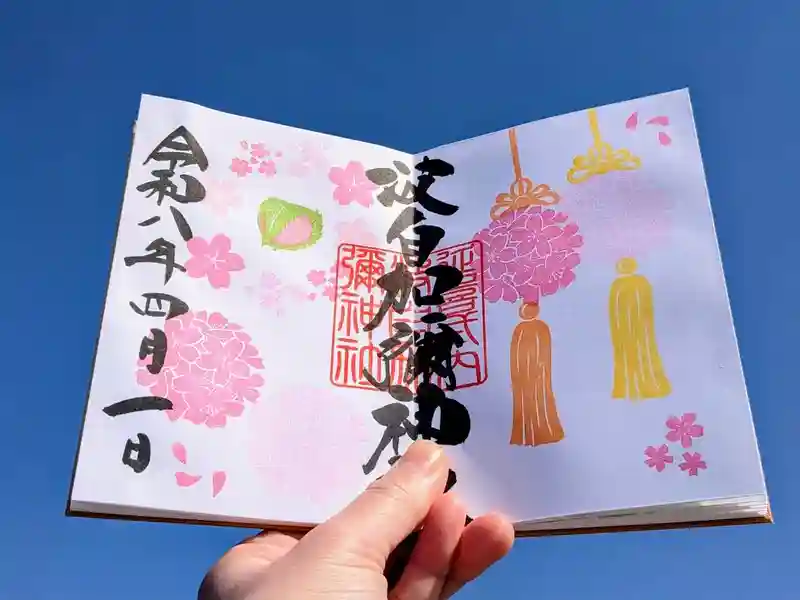 延喜式内
波自加彌神
彌神社
令和八年四月一日